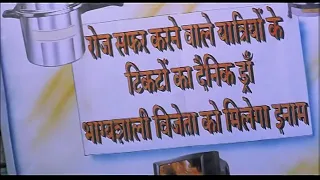 रोज सफर करने वाले यात्रियों के
टिकटों का दैनिक ड्रॉ
भाग्यशाली विजेता को मिलेगा इनाम